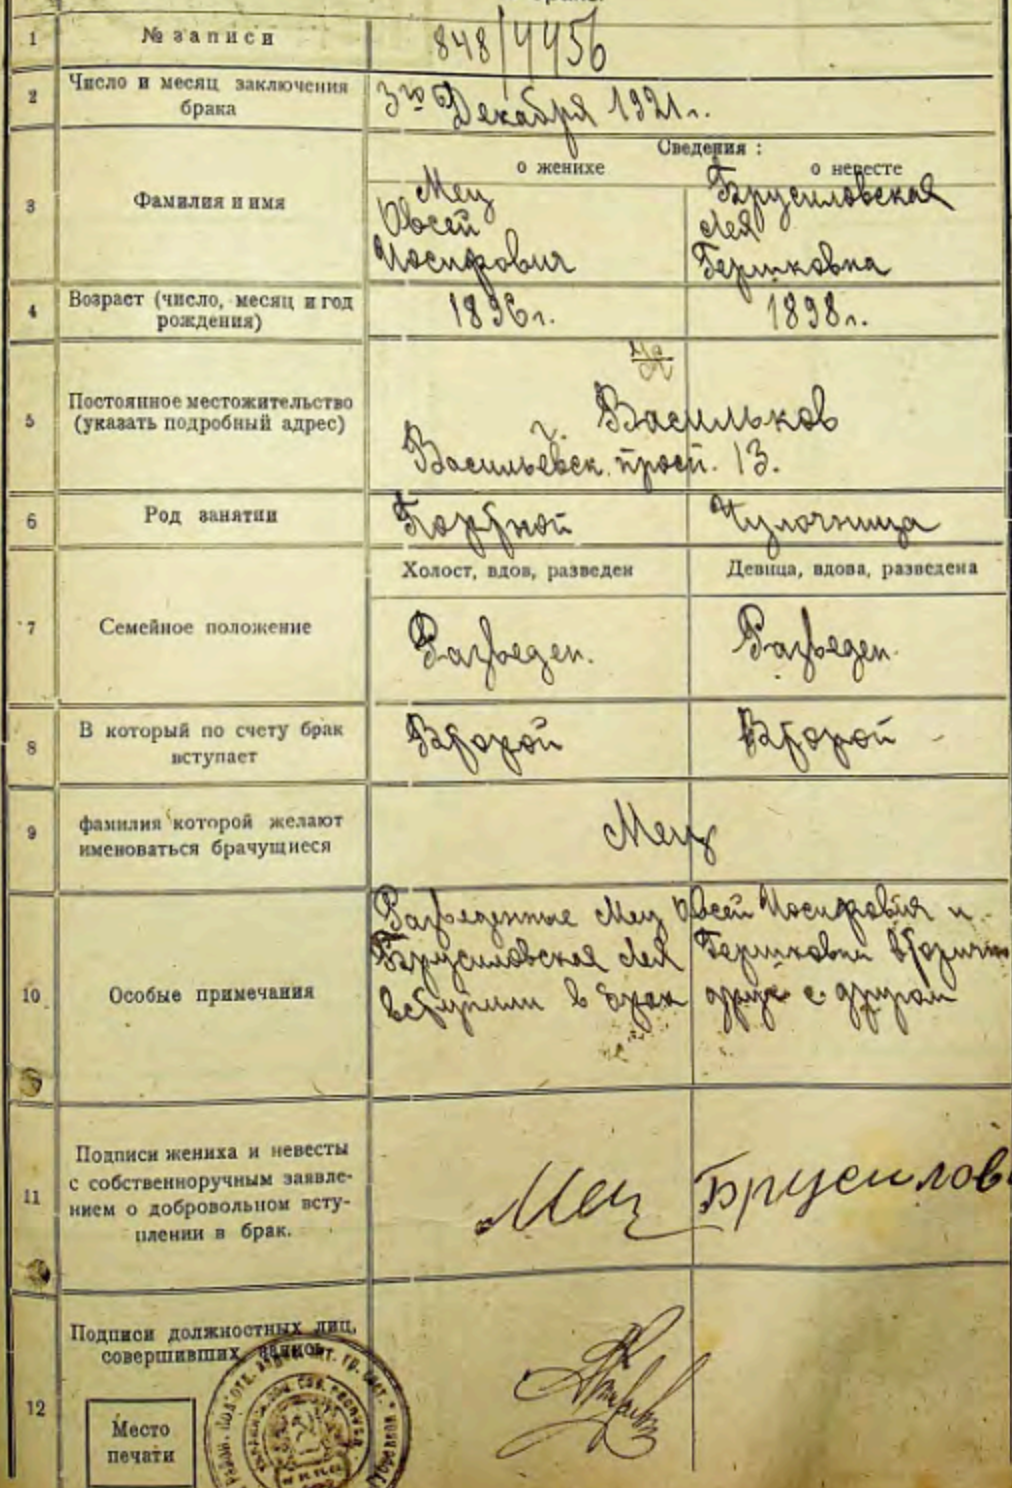 1
№ записи
848/4456
2
Число и месяц заключения
брака
3го Декабря 1921г.
Сведения :
о женихе
о невесте
3
Фамилия и имя
Мец
Овсей
Иосифович
Брусиловская
Лея
Гершковна
4
Возраст (число, месяц и год
рождения)
1896г.
1898г.
5
Постоянное местожительство
(указать подробный адрес)
г. Васильков
Васильевск. просп. 13.
6
Род занятии
Портной
Чулочница
7
Семейное положение
Холост, вдов, разведен
Девица, вдова, разведена
Разведен.
Разведен.
8
В который по счету брак
вступает
Второй
Второй
9
фамилия которой желают
именоваться брачущиеся
Мец
10
Особые примечания
Разведенные Мец Овсей Иосифович и
Брусиловская Лея Гершковна вторично
вступили в брак друг с другом
11
Подписи жениха и невесты
с собственноручным заявле-
нием о добровольном всту-
плении в брак.
Мец
Брусилов
12
Подписи должностных лиц,
совершивших запись
Место
печати